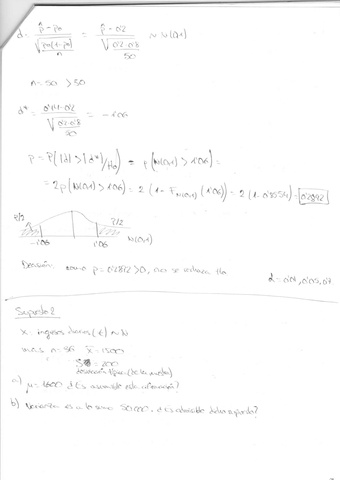 d = (p̂ - p₀) / √(p₀(1-p₀)/n) = (p̂ - 0'2) / √(0'2·0'8/50) ~ N(0,1)
n = 50 > 50
d* = (0'14 - 0'2) / √(0'2·0'8/50) = -1'06
p = P(|d| > |d*|/H₀) = P(|N(0,1)| > 1'06) =
= 2P(N(0,1) > 1'06) = 2(1 - F N(0,1) (1'06)) = 2(1 - 0'8554) = 0'2892
P/2 P/2
-1'06 1'06 N(0,1)
Decisión como p = 0'2892 > α, no se rechaza H₀ α = 0'01, 0'05, 0'1
Supuesto 2
x = ingresos diarios (€) ~ N
m.a.s n = 36 x̄ = 1500
S = 200
desviación típica (de la muestra)
a) μ = 1600 d es razonable esta afirmación?
b) Varianza es a lo sumo 50.000, d es razonable dicha